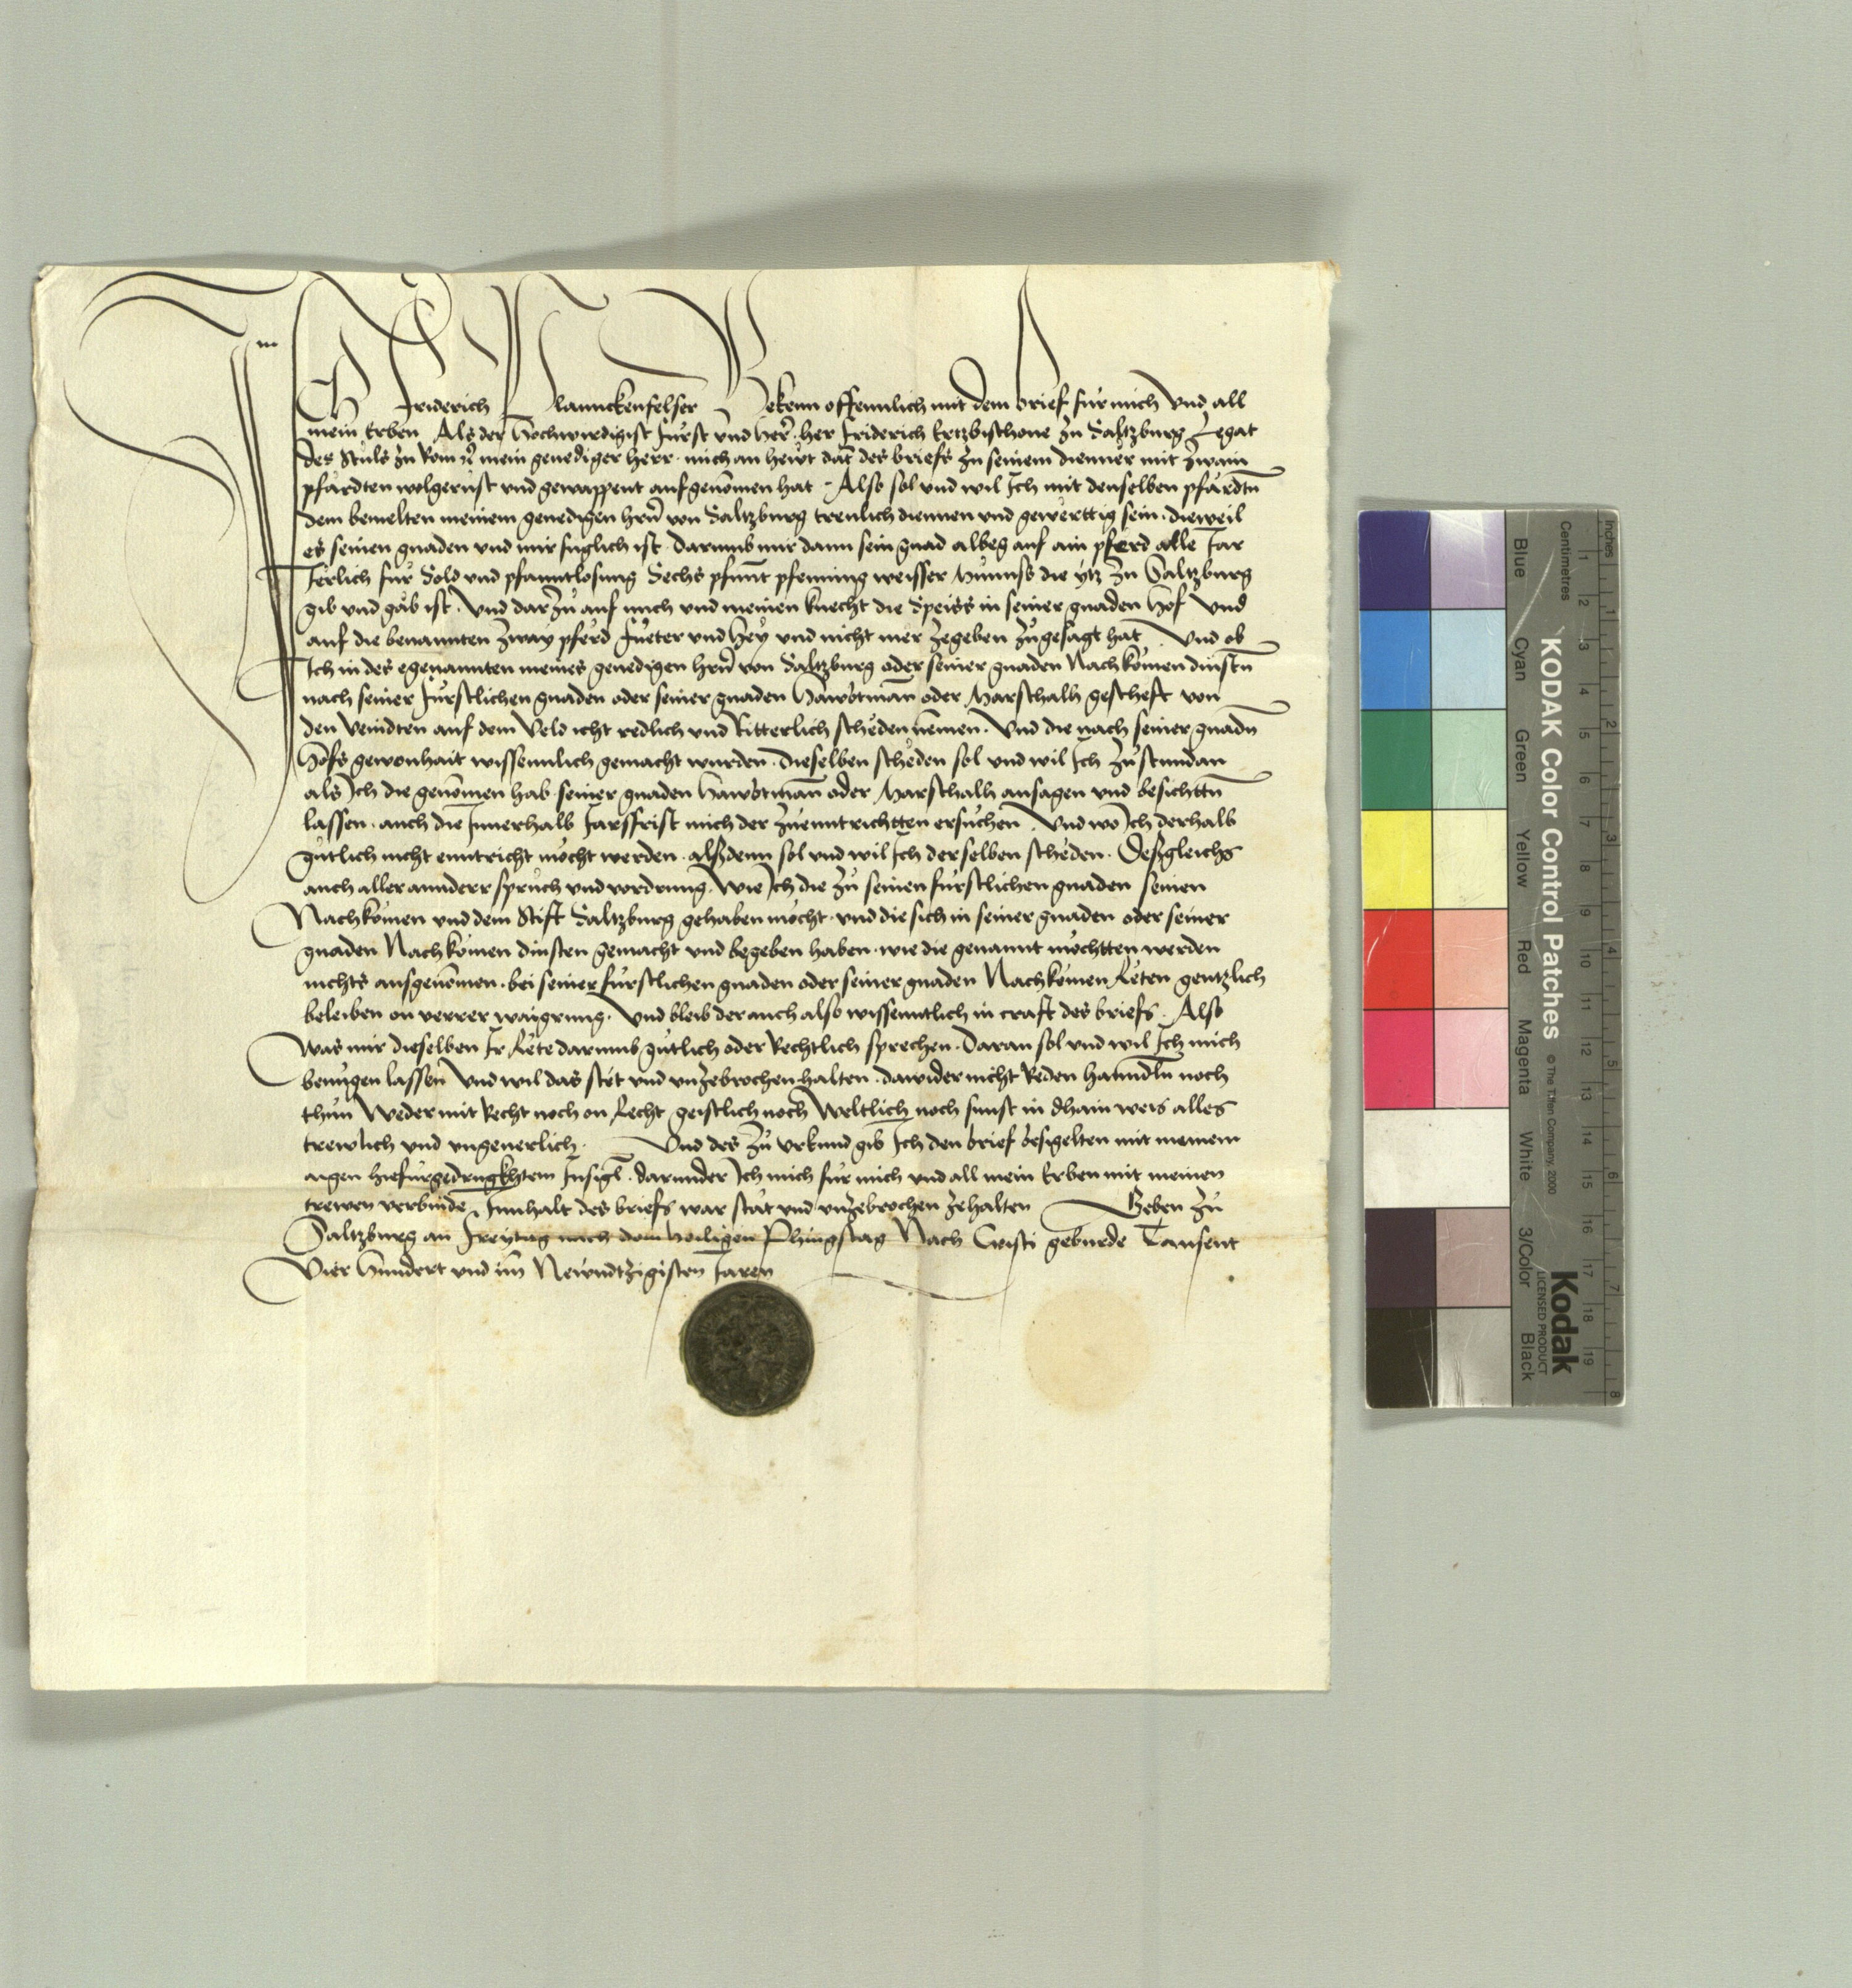 Ich Friderich Plannckenfelser Bekenn offennlich mit dem brief für mich Und all
mein Erben Als der Hochwirdigist Fürst und herr her Friderich Ertzbischoue zu Saltzburg Legat
des Stuls zu Rom mein genediger herr mich an hewt dat des briefs zu seinem dienner mit zwain
pfärdten wolgerust und gewappent aufgenomen hat Also sol und wil Ich mit denselben pfärdtn
dem bemelten meinem genedigen hrn von Saltzburg trewlich diennen und gewerttig sein dieweil
es seinen gnaden und mir fuglich ist darumb mir dann sein gnad albeg auf ain pferd alle Jar
Jerlich für Sold und pfanntlosung Sechs pfunt pfenning weisser Munnss die ytz zu Saltzburg
gib und gäb ist Und darzu auf mich und meinen knecht die Speiss in seiner gnaden Hof Und
auf die benannten zway pferd fueter und hey und nicht mer zegeben zugesagt hat Und ob
Ich in des egenannten meines genedigen hrn von Saltzburg oder seiner gnaden Nachkomen dinstn
nach seiner fürstlichen gnaden oder seiner gnaden Hawbtman oder Marschalh gescheft von
den Veindten auf dem Veld icht redlich und Ritterlich scheden nemen Und die nach seiner gnadn
Hofs gewonhait wissennlich gemacht wurden dieselben scheden sol und wil Ich zustundan
als Ich die genomen hab seiner gnaden Hawbtman oder Marschalh ansagen und besichttn
lassen auch die Innerhalb Jarssfrist mich der zuenntrichtten ersuchen Und wo Ich derhalb
gütlich nicht enntricht möcht werden alssdenn sol und wil Ich derselben scheden Dessgleichs
auch aller annderr spruch und vordrung Wie Ich die zu seinen fürstlichen gnaden seinen
Nachkomen und dem Stift Saltzburg gehaben möcht und die sich in seiner gnaden oder seiner
gnaden Nachkomen dinsten gemacht und begeben haben wie die genannt möchtten werden
nichts ausgenomen bei seiner fürstlichen gnaden oder seiner gnaden Nachkomen Reten genntzlich
beleiben on verrer waigrung Und bleib der auch also wissenntlich in craft des briefs Also
Was mir dieselben Ir Rete darumb gütlich oder Rechtlich sprechen Daran sol und wil Ich mich
benügen lassen Und wil das stet und unzebrochen halten dawider nicht Reden hanndln noch
thun Weder mit Recht noch on Recht geistlich noch Weltlich noch sunst in dhain weis alles
trewlich und ungeuerlich Und des zu urkund gib Ich den brief besigelten mit meinem
aigen hiefürgedrugkhtem Insigl darunder Ich mich für mich und all mein Erben mit meinen
trewen verbinde Innhalt des briefs war stät und unzebrochen zehalten Geben zu
Saltzburg an Freytag nach dem heiligen Phingstag Nach Cristi geburde Tausent
Vier Hundert und im Newndtzigisten Jaren
KODAK Color Control Patches © The Tiffen Company, 2000
Kodak
LICENSED PRODUCT
Blue Cyan Green Yellow Red Magenta White 3/Color Black
Inches 1 2 3 4 5 6 7 8
Centimetres 1 2 3 4 5 6 7 8 9 10 11 12 13 14 15 16 17 18 19